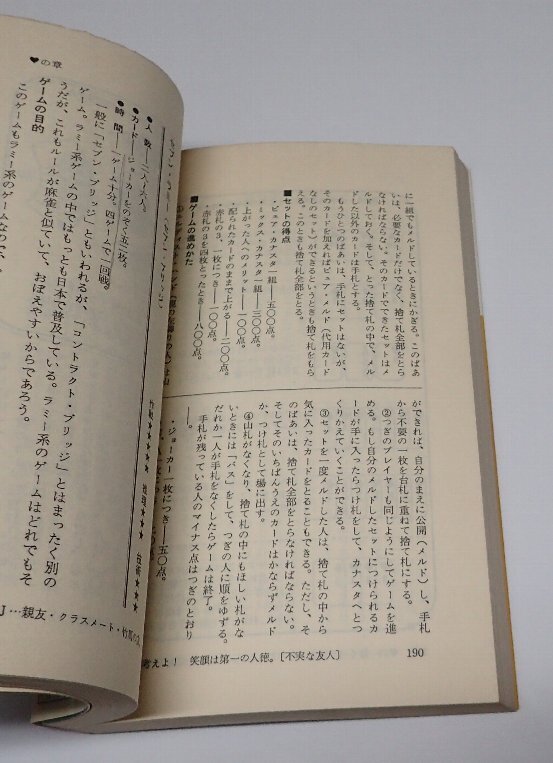 に一組でもメルドしているときにかぎる。このばあ
いは、必要なカードだけでなく、捨て札全部をとら
なければならない。そのカードでできたセットはメ
ルドしておく。そして、とった捨て札の中で、メル
ドした以外のカードは手札とする。
もうひとつのばあいは、手札にセットはないが、
そのカードを加えればピュア・メルド（代用カード
なしのセット）ができるというときも捨て札をもら
える。このときも捨て札全部をとる。
■セットの得点
・ピュア・カナスタ一組──五〇〇点。
・ミックス・カナスタ一組──三〇〇点。
・上がった人へのメリット──一〇〇点。
・配られたカードのままで上がる──二〇〇点。
・赤札の3、一枚につき──一〇〇点。
・赤札の3を四枚とったとき──八〇〇点。
■ゲームの進めかた
ができれば、自分のまえに公開（メルド）し、手札
から不要の一枚を台札に重ねて捨て札にする。
②つぎのプレイヤーも同じようにしてゲームを進
める。もし自分のメルドしたセットにつけられるカ
ードが手に入ったらつけ札をして、カナスタへとつ
くりかえていくことができる。
③セットを一度メルドした人は、捨て札の中から
気に入ったカードをとることもできる。ただし、そ
のばあいは、捨て札全部をとらなければならない。
そしてそのいちばんうえのカードはかならずメルド
か、つけ札として場に出す。
④山札がなくなり、捨て札の中にもほしい札がな
いときには「パス」をして、つぎの人に順をゆずる。
だれか一人が手札をなくしたらゲームは終了。
手札が残っている人のマイナス点はつぎのとおり
・ジョーカー一枚につき──五〇点。
190
考えよ！ 笑顔は第一の人徳。［不実な友人］
♥の章
●人数──二人～六人。
●カード──ジョーカーをのぞく五二枚。
●時間──一ゲーム十分。四ゲームで一回戦。
一般に「セブン・ブリッジ」ともいわれるが、「コントラクト・ブリッジ」とはまったく別の
ゲーム。ラミー系ゲームの中ではもっとも日本で普及している。ラミー系のゲームはどれでもそ
うだが、これもルールが麻雀と似ていて、おぼえやすいからであろう。
ゲームの目的
このゲームもラミー系のゲームなので、
親友・クラスメート・